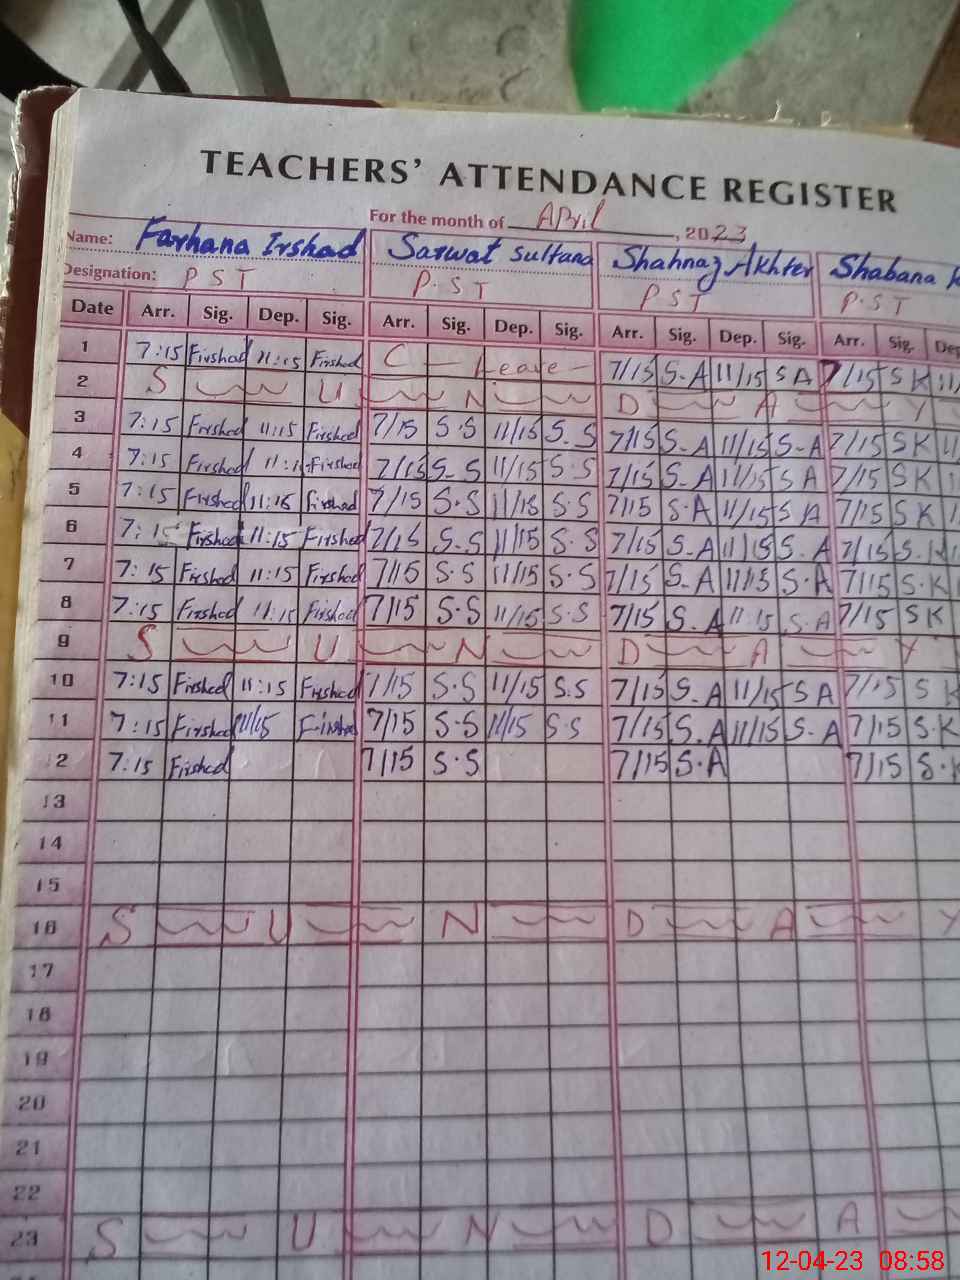 TEACHERS' ATTENDANCE REGISTER
For the month of April, 2023
Name: Farhana Irshad Sarwat Sultana Shahnaz Akhter Shabana
Designation: PST P.ST PST P.ST
Date Arr. Sig. Dep. Sig. Arr. Sig. Dep. Sig. Arr. Sig. Dep. Sig. Arr. Sig. Dep
1 7:15 Firshad 11:15 Firshad C — Leave — 7/15 S.A 11/15 S A 7/15 S K 11/
2 S U N D A Y
3 7:15 Firshad 11:15 Firshad 7/15 S.S 11/15 S.S 7/15 S.A 11/15 S.A 7/15 S K 11/
4 7:15 Firshad 11:1 Firshad 7/15 S.S 11/15 S.S 7/15 S.A 11/15 S A 7/15 S K
5 7:15 Firshad 11:15 Firshad 7/15 S.S 11/15 S.S 7/15 S.A 11/15 S A 7/15 S K
6 7:15 Firshad 11:15 Firshad 7/15 S.S 11/15 S.S 7/15 S.A 11/15 S.A 7/15 S.K
7 7:15 Firshad 11:15 Firshad 7/15 S.S 11/15 S.S 7/15 S.A 11/15 S.A 7/15 S.K
8 7:15 Firshad 11:15 Firshad 7/15 S.S 11/15 S.S 7/15 S.A 11:15 S.A 7/15 S K
9 S U N D A Y
10 7:15 Firshad 11:15 Firshad 7/15 S.S 11/15 S.S 7/15 S.A 11/15 S A 7/15 S K
11 7:15 Firshad 11/15 Firshad 7/15 S.S 11/15 S.S 7/15 S.A 11/15 S.A 7/15 S.K
12 7:15 Firshad 7/15 S.S 7/15 S.A 7/15 S.K
13
14
15
16 S U N D A Y
17
18
19
20
21
22
23 S U N D A
12-04-23 08:58